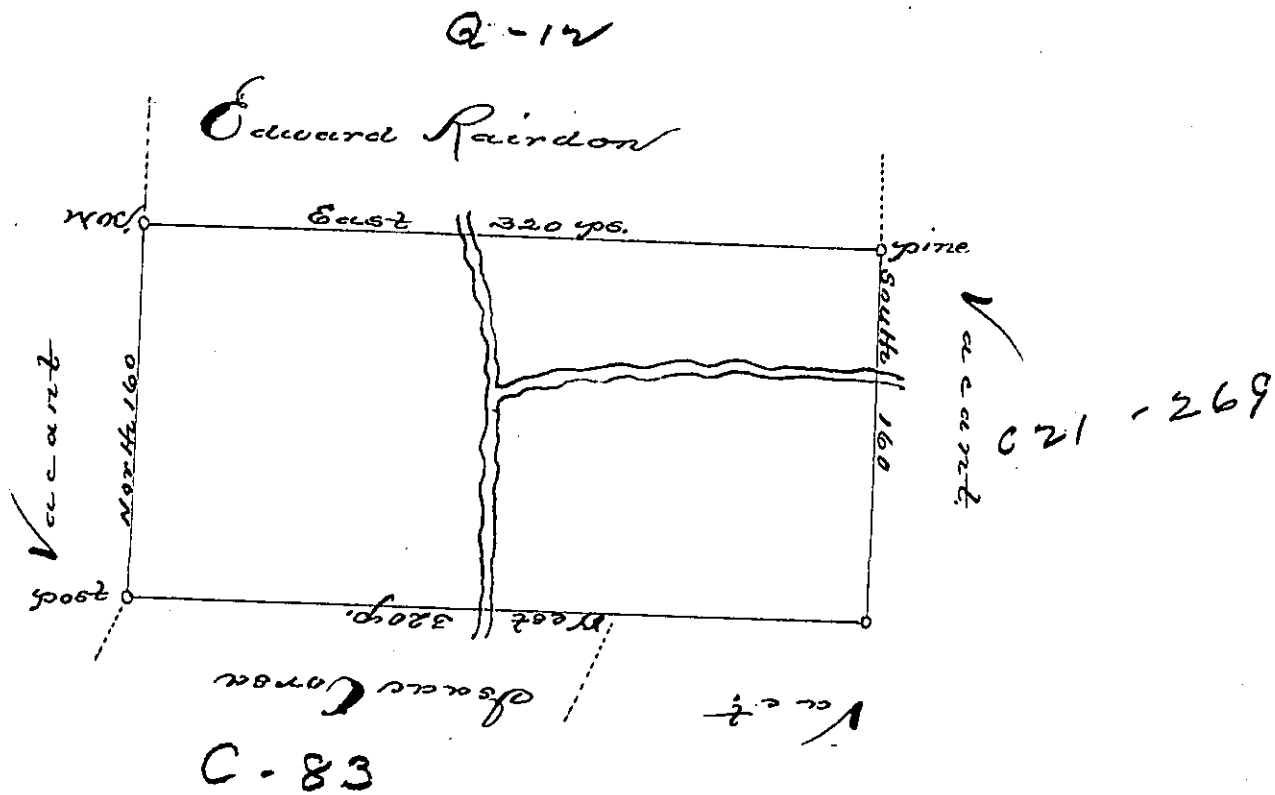 Q-12
Edward Rairdon
East 320 ps.
pine
South 160
Vacant
C21-269
Vacant
North 160
West 320 p.
Isaac Corsa
Vact
C-83